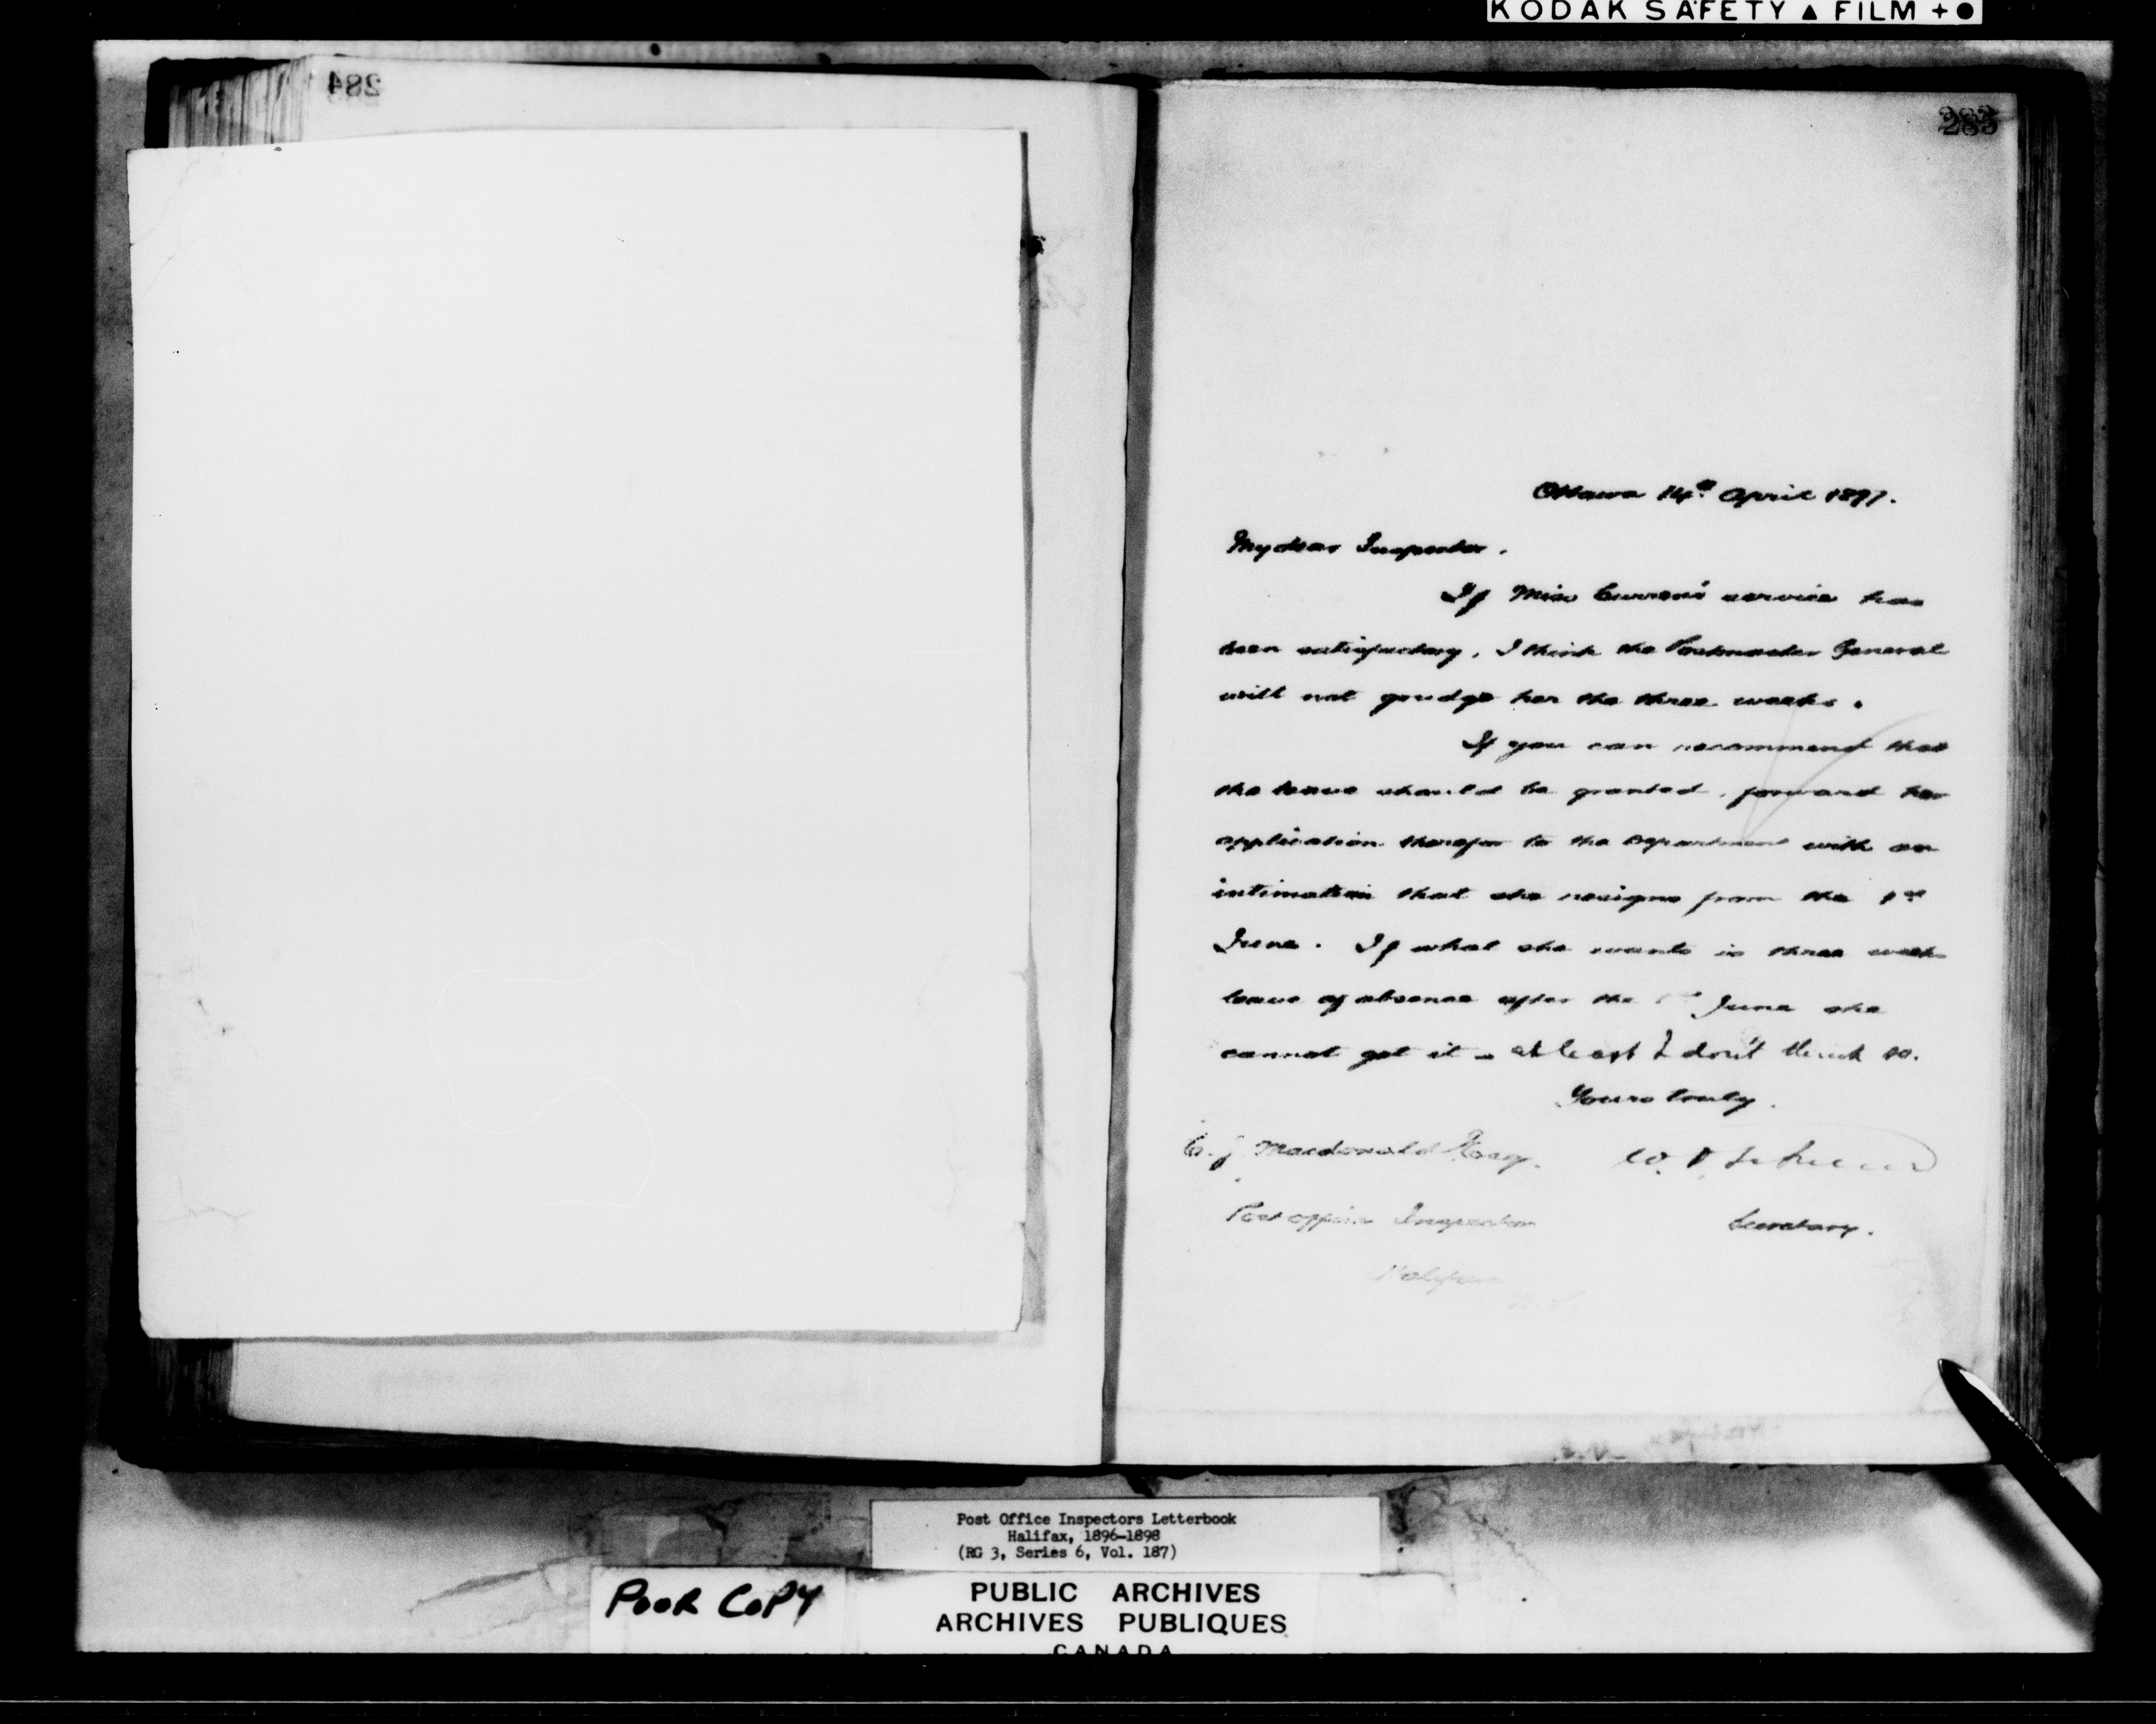 KODAK SAFETY ▲ FILM + ●
284
283
Ottawa 14th April 1897.
My dear Inspector.
If Miss Curren's service has
been satisfactory, I think the Postmaster General
will not grudge her the three weeks.
If you can recommend that
the leave should be granted, forward her
application therefor to the Department with an
intimation that she resigns from the 1st
June. If what she wants is three weeks
leave of absence after the 1st June she
cannot get it – at least I don't think so.
Yours truly.
Macdonald Esqr.
W. D.
Post Office Inspector
Secretary.
Halifax
N.S.
Post Office Inspectors Letterbook
Halifax, 1896-1898
(RG 3, Series 6, Vol. 187)
POOR COPY
PUBLIC ARCHIVES
ARCHIVES PUBLIQUES
CANADA